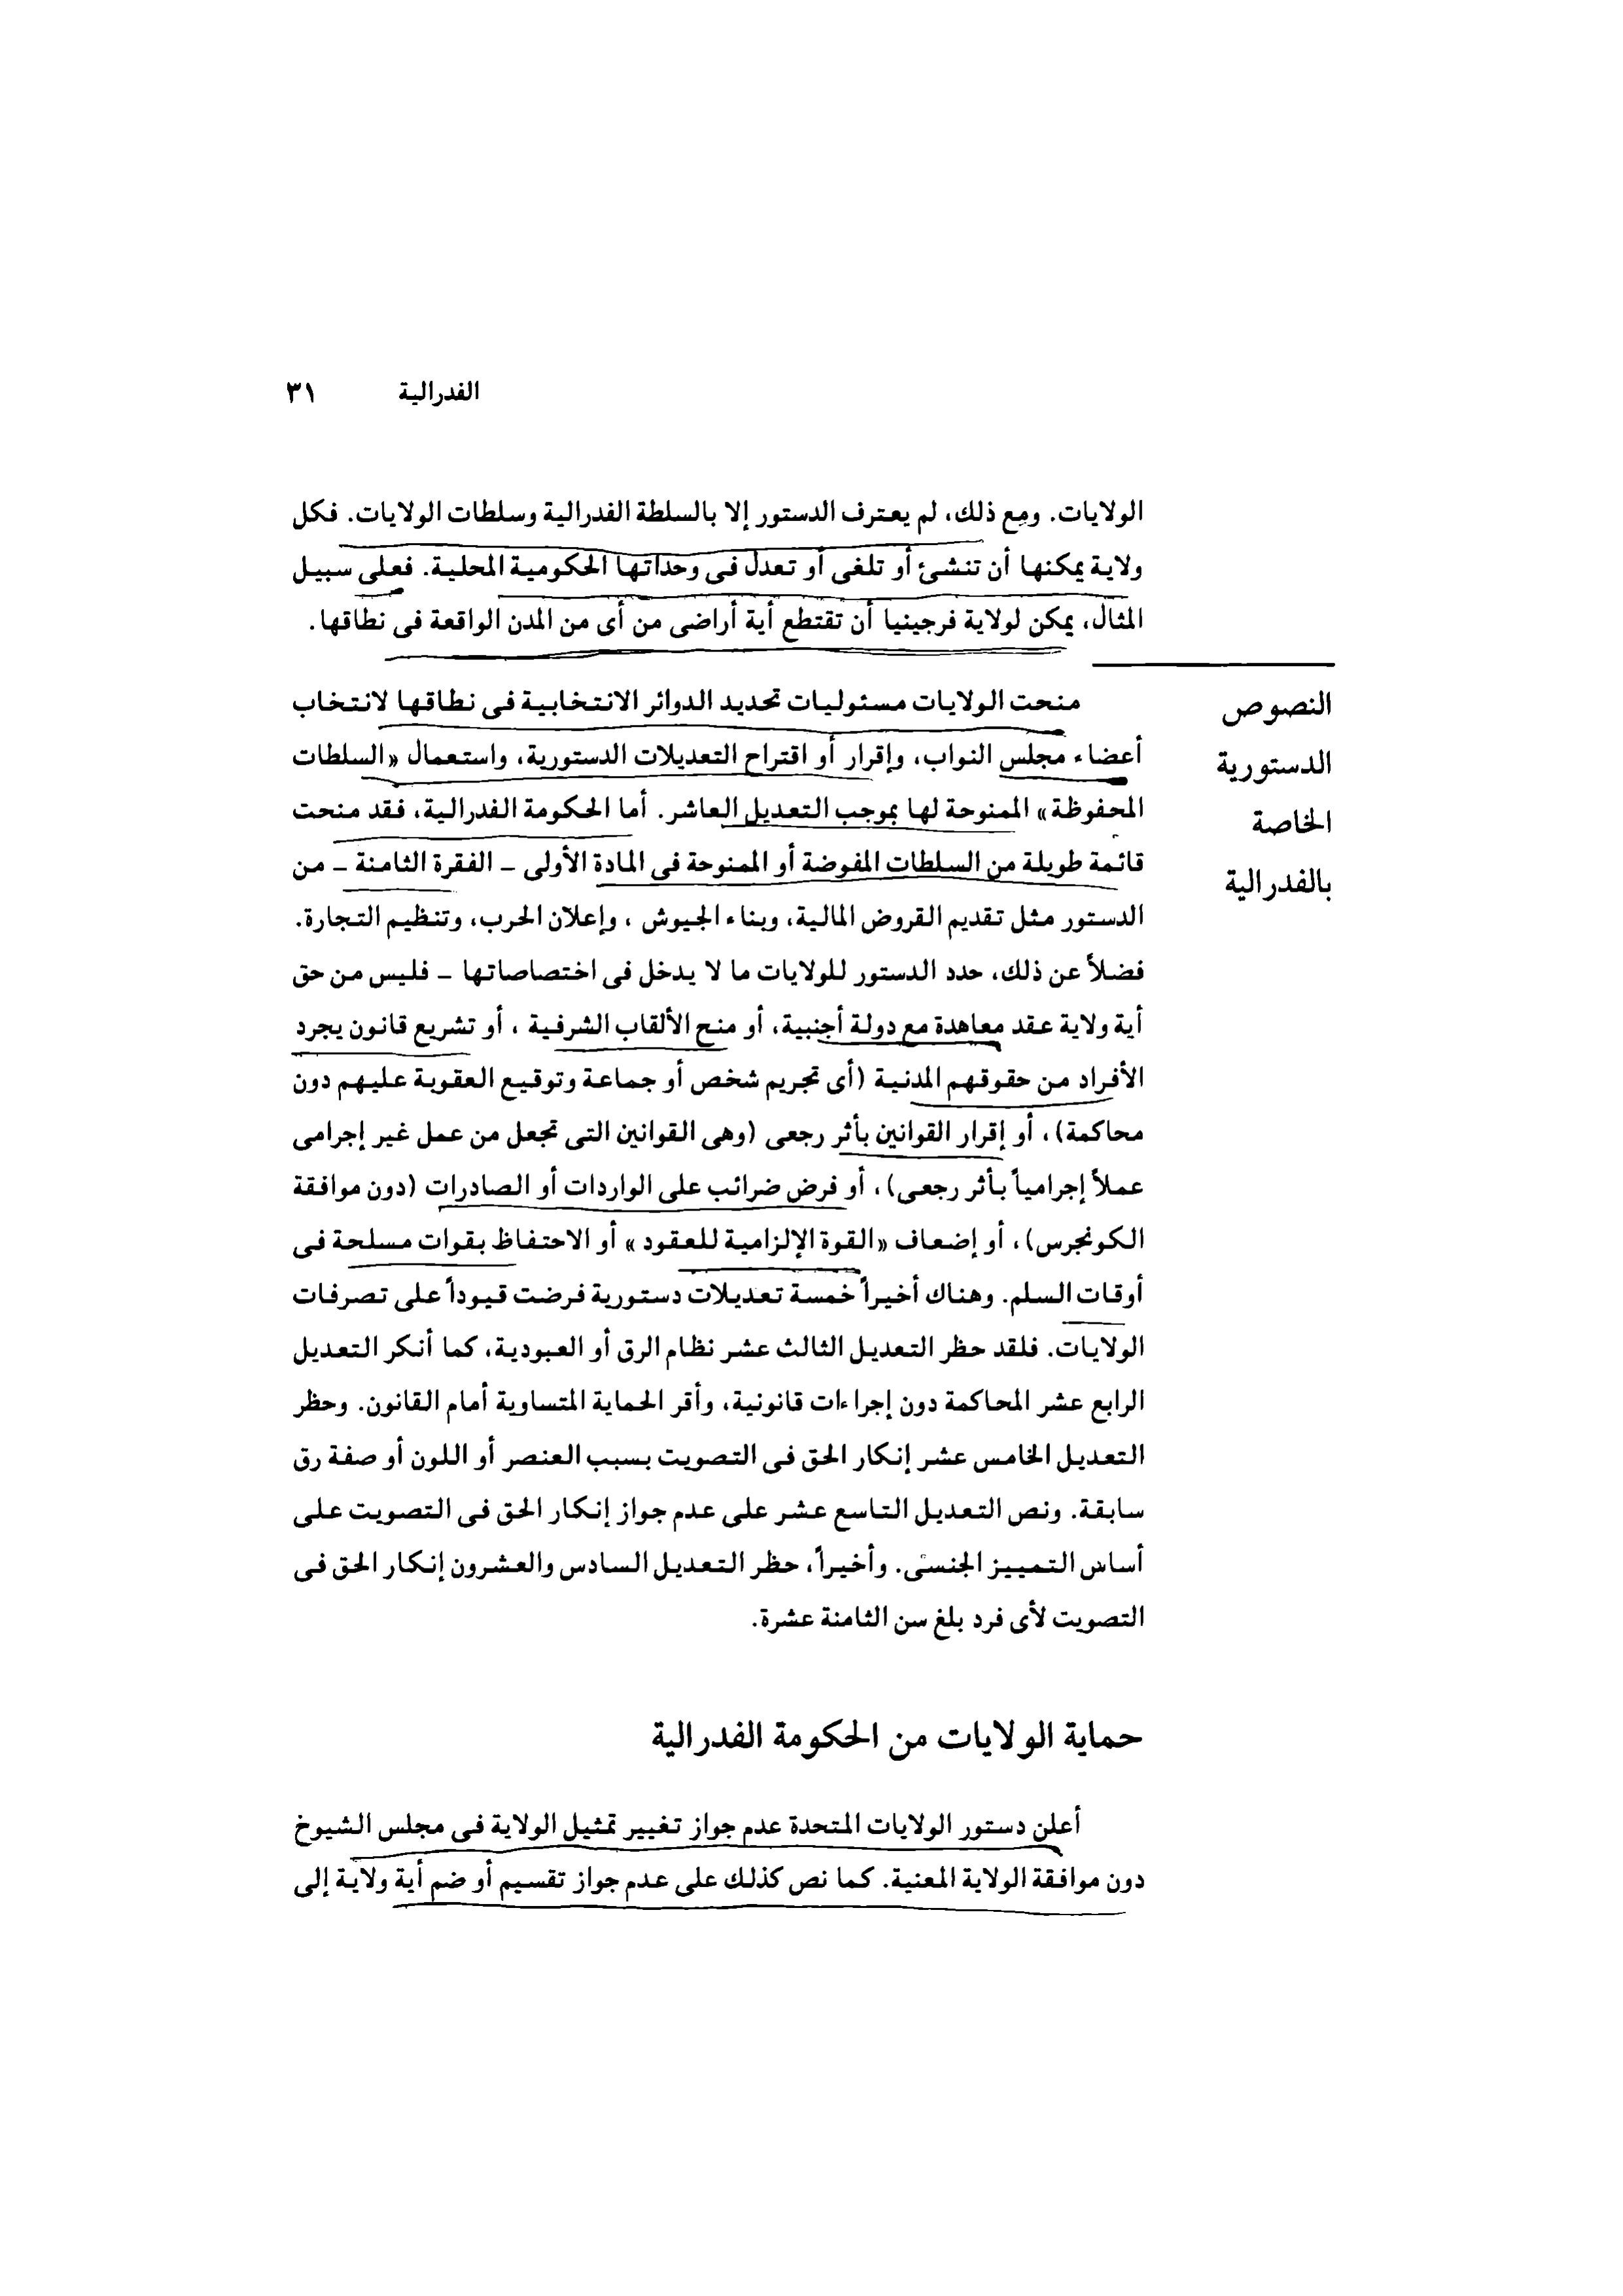 الفدرالية ٣١
الولايات. ومع ذلك، لم يعترف الدستور إلا بالسلطة الفدرالية وسلطات الولايات. فكل
ولاية يمكنها أن تنشئ أو تلغى أو تعدل فى وحداتها الحكومية المحلية. فعلى سبيل
المثال، يمكن لولاية فرجينيا أن تقتطع أية أراضى من أى من المدن الواقعة فى نطاقها.
النصوص
الدستورية
الخاصة
بالفدرالية
منحت الولايات مسئوليات تحديد الدوائر الانتخابية فى نطاقها لانتخاب
أعضاء مجلس النواب، وإقرار أو اقتراح التعديلات الدستورية، واستعمال «السلطات
المحفوظة» الممنوحة لها بموجب التعديل العاشر. أما الحكومة الفدرالية، فقد منحت
قائمة طويلة من السلطات المفوضة أو الممنوحة فى المادة الأولى – الفقرة الثامنة – من
الدستور مثل تقديم القروض المالية، وبناء الجيوش ، وإعلان الحرب، وتنظيم التجارة.
فضلاً عن ذلك، حدد الدستور للولايات ما لا يدخل فى اختصاصاتها – فليس من حق
أية ولاية عقد معاهدة مع دولة أجنبية، أو منح الألقاب الشرفية ، أو تشريع قانون يجرد
الأفراد من حقوقهم المدنية (أى تجريم شخص أو جماعة وتوقيع العقوبة عليهم دون
محاكمة) ، أو إقرار القوانين بأثر رجعى (وهى القوانين التى تجعل من عمل غير إجرامى
عملاً إجرامياً بأثر رجعى) ، أو فرض ضرائب على الواردات أو الصادرات (دون موافقة
الكونجرس) ، أو إضعاف «القوة الإلزامية للعقود » أو الاحتفاظ بقوات مسلحة فى
أوقات السلم. وهناك أخيراً خمسة تعديلات دستورية فرضت قيوداً على تصرفات
الولايات. فلقد حظر التعديل الثالث عشر نظام الرق أو العبودية، كما أنكر التعديل
الرابع عشر المحاكمة دون إجراءات قانونية، وأقر الحماية المتساوية أمام القانون. وحظر
التعديل الخامس عشر إنكار الحق فى التصويت بسبب العنصر أو اللون أو صفة رق
سابقة. ونص التعديل التاسع عشر على عدم جواز إنكار الحق فى التصويت على
أساس التمييز الجنسى. وأخيراً، حظر التعديل السادس والعشرون إنكار الحق فى
التصويت لأى فرد بلغ سن الثامنة عشرة.
حماية الولايات من الحكومة الفدرالية
أعلن دستور الولايات المتحدة عدم جواز تغيير تمثيل الولاية فى مجلس الشيوخ
دون موافقة الولاية المعنية. كما نص كذلك على عدم جواز تقسيم أو ضم أية ولاية إلى